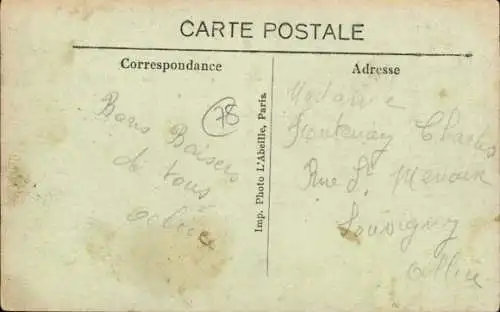 CARTE POSTALE
Correspondance
Bons Baisers
de tous
78
Imp. Photo L'Abeille, Paris.
Adresse
Madame
Fontenay Charles
Rue St
Souvigny
Allier